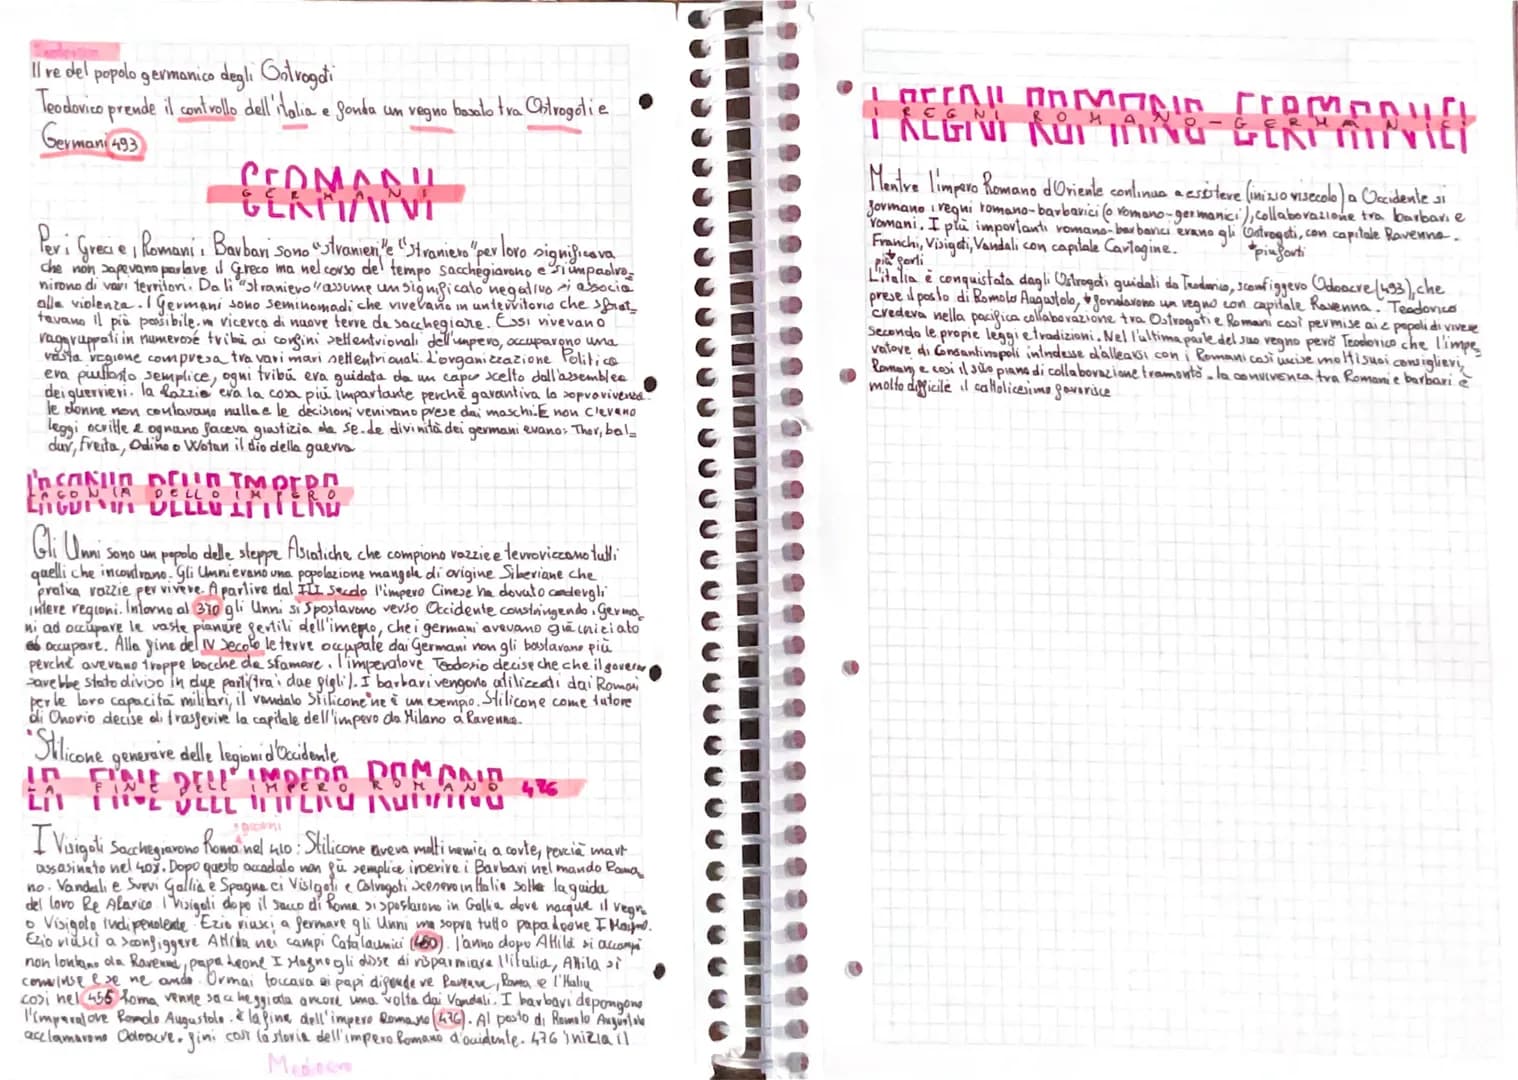 Il re del popolo germanico degli Ostrogoti
Teodorico prende il controllo dell'italia e fonda un regno basato tra Ostrogoti e
Germani 493
GERMANI
GERMANI
Per i Greci e i Romani i Barbari sono "stranieri" e "straniero" per loro significava
che non sapevano parlare il Greco ma nel corso del tempo sacchegiarono e si impadro_
nirono di vari territori. Da lì "straniero" assume un significato negativo si associa
alla violenza. I Germani sono seminomadi che vivevano in un territorio che sfrut_
tavano il più possibile in ricerca di nuove terre da sacchegiare. Essi vivevano
raggruppati in numerose tribù ai confini settentrionali dell'impero, occuparono una
vasta regione compresa tra vari mari settentrionali. L'organizzazione Politica
era piuttosto semplice, ogni tribù era guidata da un capo scelto dall'assemblea
dei guerrieri. la Razzia era la cosa più importante perché garantiva la sopravvivenza.
le donne non contavano nulla e le decisioni venivano prese dai maschi. E non c'erano
leggi scritte e ognuno faceva giustizia da se. le divinità dei germani erano: Thor, bal_
dur, Freita, Odino o Wotan il dio della guerra
L'AGONIA DELLO IMPERO
L'AGONIA DELLO IMPERO
Gli Unni sono un popolo delle steppe Asiatiche che compiono razzie e terrorizzano tutti
quelli che incontrano. Gli Unni erano una popolazione mangola di origine Siberiane che
pratica razzie per vivere. A partire dal III secolo l'impero Cinese ha dovuto cedergli
intere regioni. Intorno al 370 gli Unni si spostavano verso Occidente constringendo i Germa_
ni ad occupare le vaste pianure fertili dell'imepro, che i germani avevano già iniziato
ad occupare. Alla fine del IV secolo le terre occupate dai Germani non gli bastavano più
perché avevano troppe bocche da sfamare. l'imperatore Teodosio decise che che il governo
sarebbe stato diviso in due parti (tra i due figli). I barbari vengono utilizzati dai Romani
per le loro capacità militari, il vandalo Stilicone* ne è un esempio. Stilicone come tutore
di Onorio decise di trasferire la capitale dell'impero da Milano a Ravenna.
*Stilicone generare delle legioni d'Occidente
LA FINE DELL'IMPERO ROMANO 476
LA FINE DELL'IMPERO ROMANO
giorni
I Visigoti Saccheggiarono Roma nel 410: Stilicone aveva molti nemici a corte, perciò
assasinato nel 408. Dopo questo accadalo non fù semplice inserire i Barbari nel mondo Roma_
no. Vandali e Svevi Gallia e Spagna ci Visigoti e Ostrogoti scesero in Italia sotto la guida
del loro Re Alarico. I Visigoti dopo il sacco di Roma si spostarono in Gallia dove nacque il regn_
o Visigoto Indipendente. Ezio riuscì a fermare gli Unni ma sopra tutto papa Leone I Magno.
Ezio riuscì a sconfiggere Attila nei campi Catalaunici (450). l'anno dopo Attila si accampò
non lontano da Ravenna, papa Leone I Magno gli disse di risparmiare l'italia, Attila si
convinse e se ne andò. Ormai toccava ai papi difendere Ravenna, Roma e l'Italia
così nel 455 Roma venne saccheggiata ancora una volta dai Vandali. I barbari depongono
l'imperatore Romolo Augustolo. è la fine dell'impero Romano (476). Al posto di Romolo Augustolo
acclamarono Odoacre. finì così la storia dell'impero Romano d'occidente. 476 inizia il
Medioevo
I REGNI ROMANO GERMANICI
I REGNI ROMANO-GERMANICI
Mentre l'impero Romano d'Oriente continua a esistere (inizio VI secolo) a Occidente si
formano i regni romano-barbarici (o romano-germanici), collaborazione tra barbari e
romani. I più importanti romano-barbarici erano gli Ostrogoti, con capitale Ravenna.
Franchi, Visigoti, Vandali con capitale Cartagine. *più forti
più forti
L'italia è conquistata dagli Ostrogoti guidati da Teodorico, sconfiggero Odoacre (493), che
prese il posto di Romolo Augustolo, fondarono un regno con capitale Ravenna. Teodorico
credeva nella pacifica collaborazione tra Ostrogoti e Romani così permise ai 2 popoli di vivere
secondo le propie leggi e tradizioni. Nell'ultima parte del suo regno però Teodorico che l'impe_
ratore di Constantinopoli intndesse d'allearsi con i Romani così uccise molti suoi consiglieri,
Romani, e così il suo piano di collaborazione tramontò. la convivenza tra Romani e barbari è
molto difficile il cattolicesimo favorisce